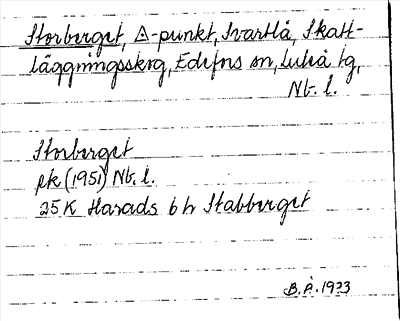 Storberget, △-punkt, Svartlå, Skatt-
läggningsskog, Edefors sn, Luleå tg,
Nb. l.
Storberget
ek (1951) Nb. l.
25K Harads 6 h Stabberget
B.Å. 1973